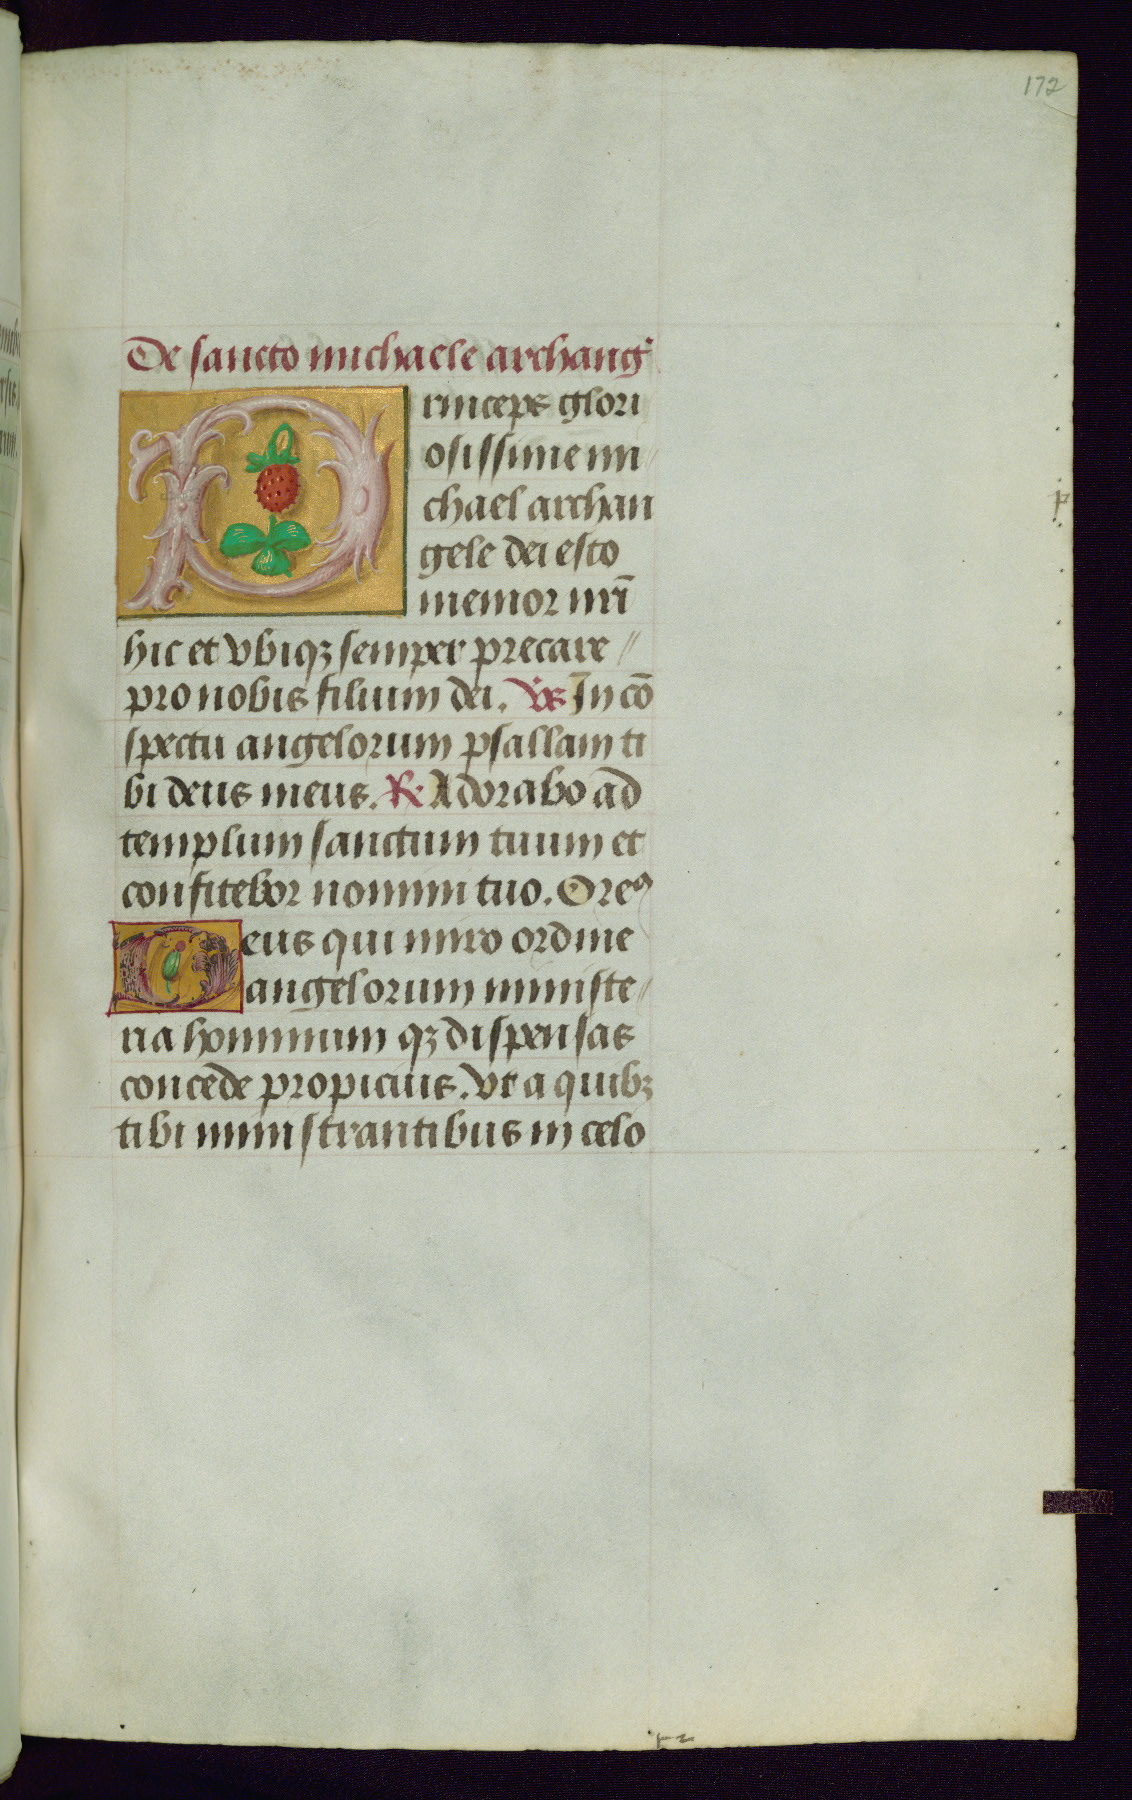 172
De sancto michaele archang
Princeps glori
osissime mi
chael archan
gele dei esto
memor nrī
hic et vbiqꝫ semper precare
pro nobis filium dei. V̄s In cō
spectu angelorum psallam ti
bi deus meus. ℞ Adorabo ad
templum sanctum tuum et
confitebor nomini tuo. Oreꝰ
Deus qui miro ordine
angelorum ministe
ria hominum qꝫ dispensas
concede propicius. Vt a quibꝫ
tibi ministrantibus in celo